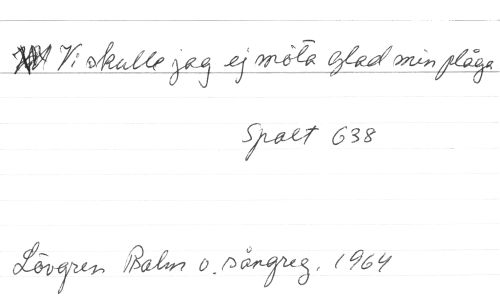 Vi skulle jag ej möta glad min plåga
Spalt 638
Lövgren Psalm o. sångreg. 1964